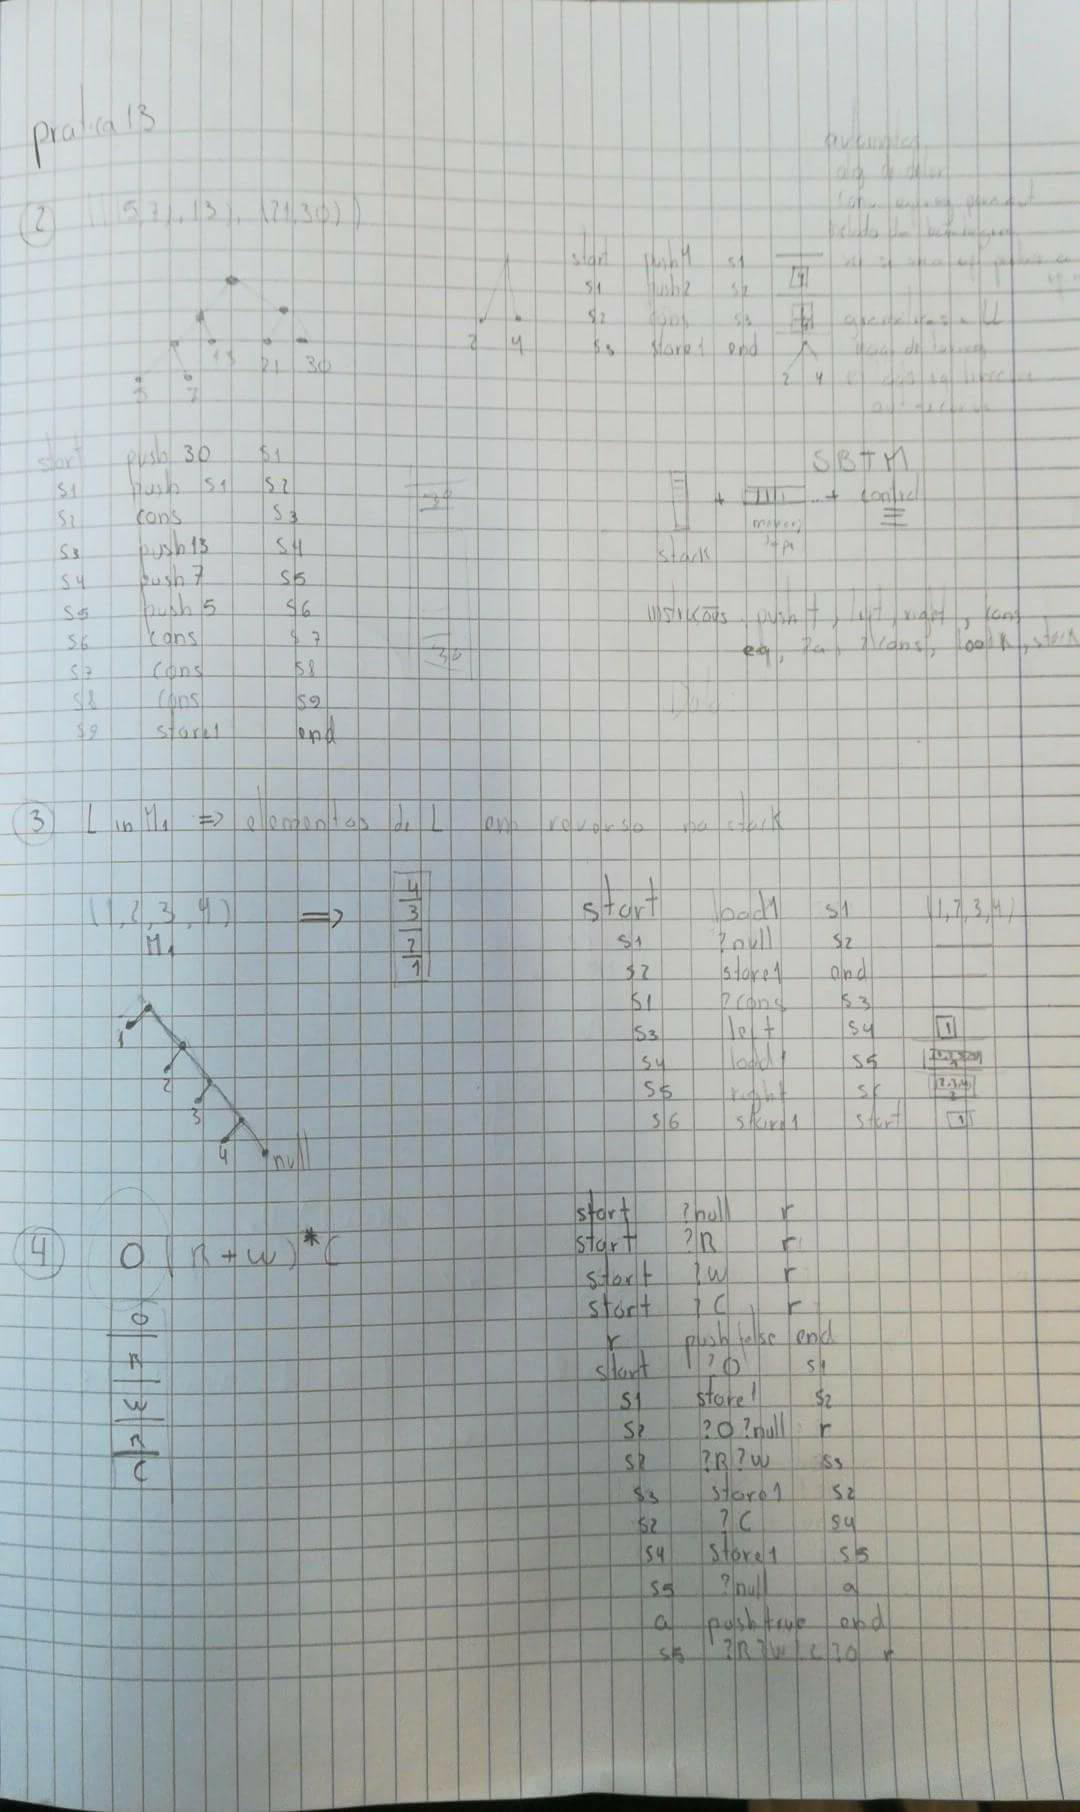 pratica 13
② (((5,7),13),(21,30))
5 7 13 21 30
2 4
start push4 s1
s1 push2 s2
s2 cons s3
s3 store1 end
2 4
start push 30 s1
s1 push s1 s2
s2 cons s3
s3 push13 s4
s4 push7 s5
s5 push5 s6
s6 cons s7
s7 cons s8
s8 cons s9
s9 store1 end
SBTM
+ ...+ control
stack
push t, left, right, cons
eq, ?a, ?cons, load k, store k
③ L in M1 => elementos de L em reverso na stack
(1,2,3,4) => 4 3 2 1
M1
1 2 3 4 null
start load1 s1 (1,2,3,4)
s1 ?null s2
s2 store1 end
s1 ?cons s3
s3 left s4 1
s4 load1 s5
s5 right s6
s6 store1 start 1
④ O(R+W)*C
O
R
W
R
C
start ?null r
start ?R r
start ?W r
start ?C r
r push false end
start ?O s1
s1 store1 s2
s2 ?O ?null r
s2 ?R ?W s3
s3 store1 s2
s2 ?C s4
s4 store1 s5
s5 ?null a
a push true end
s5 ?R ?W ?C ?O r